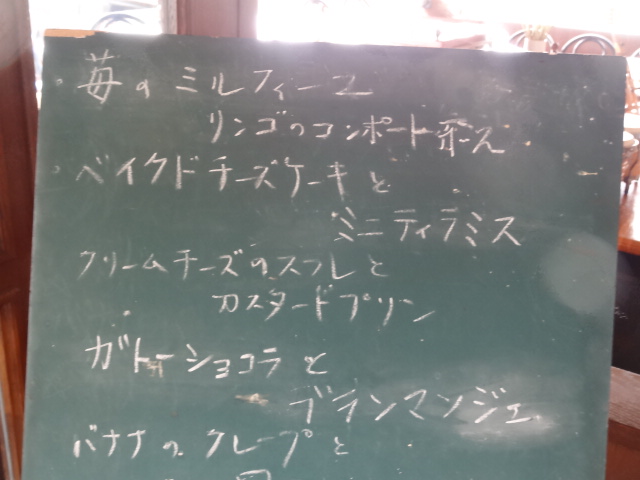 ・苺のミルフィーユ
リンゴのコンポート添え
・ベイクドチーズケーキと
ミニティラミス
クリームチーズのスフレと
カスタードプリン
ガトーショコラと
ブランマンジェ
バナナのクレープと